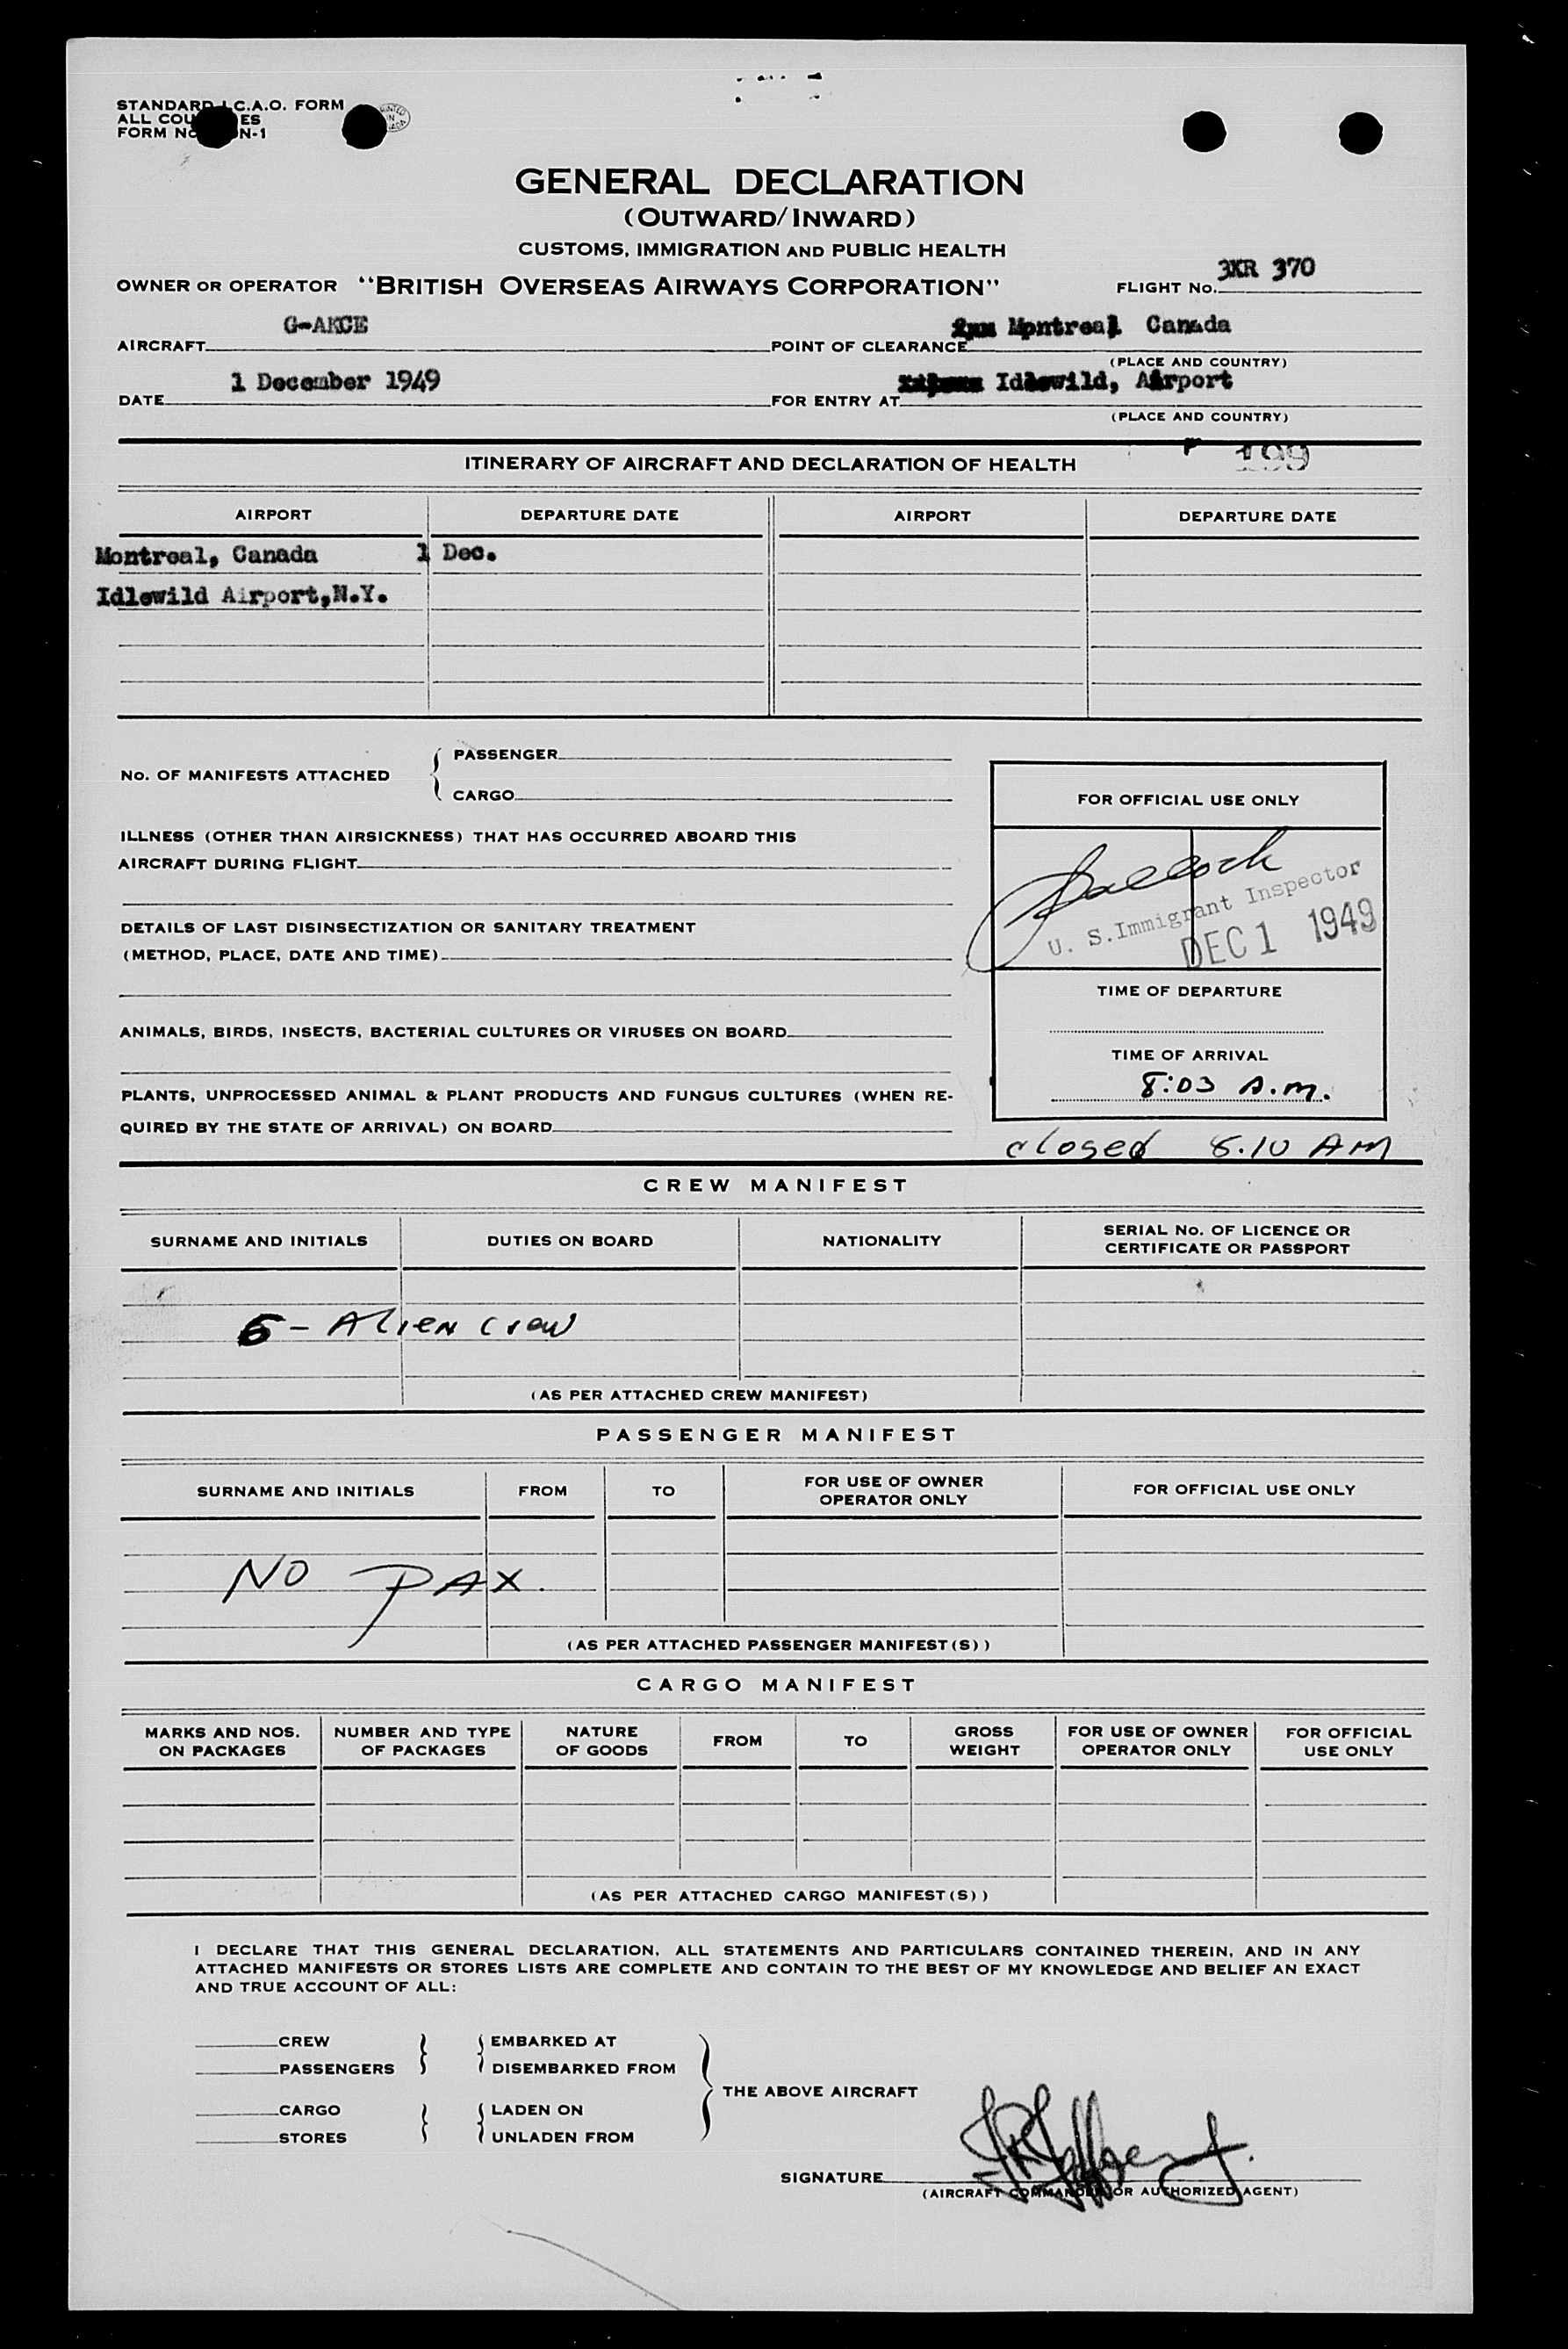 STANDARD I.C.A.O. FORM
ALL COU ES
FORM NO N-1
PRINTED IN CANADA
GENERAL DECLARATION
(OUTWARD/INWARD)
CUSTOMS, IMMIGRATION AND PUBLIC HEALTH
OWNER OR OPERATOR "BRITISH OVERSEAS AIRWAYS CORPORATION" FLIGHT No. 3XR 370
AIRCRAFT G-AKCE POINT OF CLEARANCE Montreal Canada
(PLACE AND COUNTRY)
DATE 1 December 1949 FOR ENTRY AT Idlewild, Airport
(PLACE AND COUNTRY)
ITINERARY OF AIRCRAFT AND DECLARATION OF HEALTH 199
AIRPORT DEPARTURE DATE AIRPORT DEPARTURE DATE
Montreal, Canada 1 Dec.
Idlewild Airport,N.Y.
No. OF MANIFESTS ATTACHED { PASSENGER
CARGO
FOR OFFICIAL USE ONLY
ILLNESS (OTHER THAN AIRSICKNESS) THAT HAS OCCURRED ABOARD THIS
AIRCRAFT DURING FLIGHT
U. S. Immigrant Inspector
DEC 1 1949
DETAILS OF LAST DISINSECTIZATION OR SANITARY TREATMENT
(METHOD, PLACE, DATE AND TIME)
TIME OF DEPARTURE
ANIMALS, BIRDS, INSECTS, BACTERIAL CULTURES OR VIRUSES ON BOARD
TIME OF ARRIVAL
8:03 A.M.
PLANTS, UNPROCESSED ANIMAL & PLANT PRODUCTS AND FUNGUS CULTURES (WHEN RE-
QUIRED BY THE STATE OF ARRIVAL) ON BOARD
closed 8.10 AM
CREW MANIFEST
SURNAME AND INITIALS DUTIES ON BOARD NATIONALITY SERIAL No. OF LICENCE OR
CERTIFICATE OR PASSPORT
6 - Alien Crew
(AS PER ATTACHED CREW MANIFEST)
PASSENGER MANIFEST
SURNAME AND INITIALS FROM TO FOR USE OF OWNER
OPERATOR ONLY FOR OFFICIAL USE ONLY
NO PAX.
(AS PER ATTACHED PASSENGER MANIFEST(S))
CARGO MANIFEST
MARKS AND NOS.
ON PACKAGES NUMBER AND TYPE
OF PACKAGES NATURE
OF GOODS FROM TO GROSS
WEIGHT FOR USE OF OWNER
OPERATOR ONLY FOR OFFICIAL
USE ONLY
(AS PER ATTACHED CARGO MANIFEST(S))
I DECLARE THAT THIS GENERAL DECLARATION, ALL STATEMENTS AND PARTICULARS CONTAINED THEREIN, AND IN ANY
ATTACHED MANIFESTS OR STORES LISTS ARE COMPLETE AND CONTAIN TO THE BEST OF MY KNOWLEDGE AND BELIEF AN EXACT
AND TRUE ACCOUNT OF ALL:
CREW EMBARKED AT
PASSENGERS DISEMBARKED FROM
THE ABOVE AIRCRAFT
CARGO LADEN ON
STORES UNLADEN FROM
SIGNATURE
(AIRCRAFT COMMANDER OR AUTHORIZED AGENT)